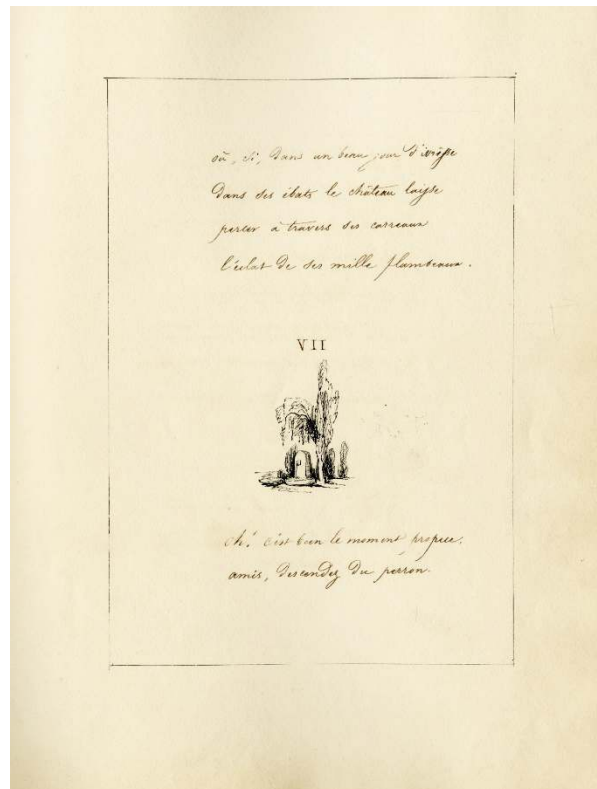 où, si, dans un beau jour d'ivresse
dans ses ébats le château laisse
percer à travers ses carreaux
l'éclat de ses mille flambeaux.
VII
eh! c'est bien le moment propice.
amis, descendez du perron.